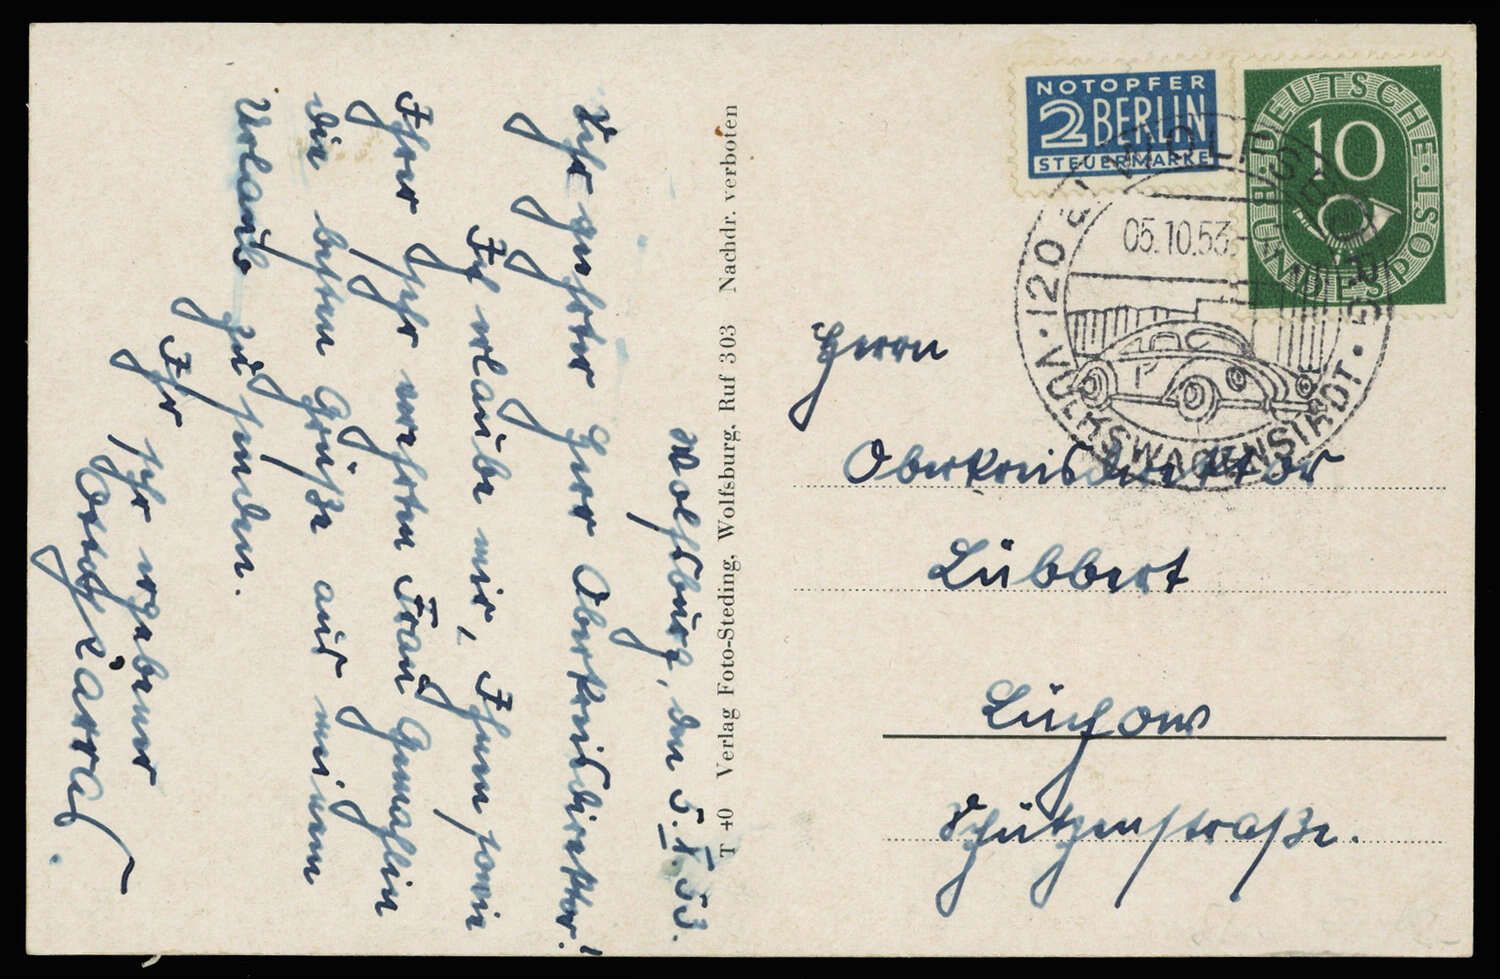 Wolfsburg, den 5.X.53.
Sehr geehrter Herr Oberkreisdirektor!
Ich erlaube mir, Ihnen sowie
Ihrer sehr verehrten Frau Gemahlin
die besten Grüße aus meinem
Urlaub zu senden.
Ihr sehr ergebener
T 40 Verlag Foto-Steding, Wolfsburg, Ruf 303 Nachdr. verboten
NOTOPFER
2 BERLIN
STEUERMARKE
DEUTSCHE BUNDESPOST
10
20a WOLFSBURG
05.10.53
VOLKSWAGENSTADT
Herrn
Oberkreisdirektor
Lübbert
Lüchow
Schützenstraße.